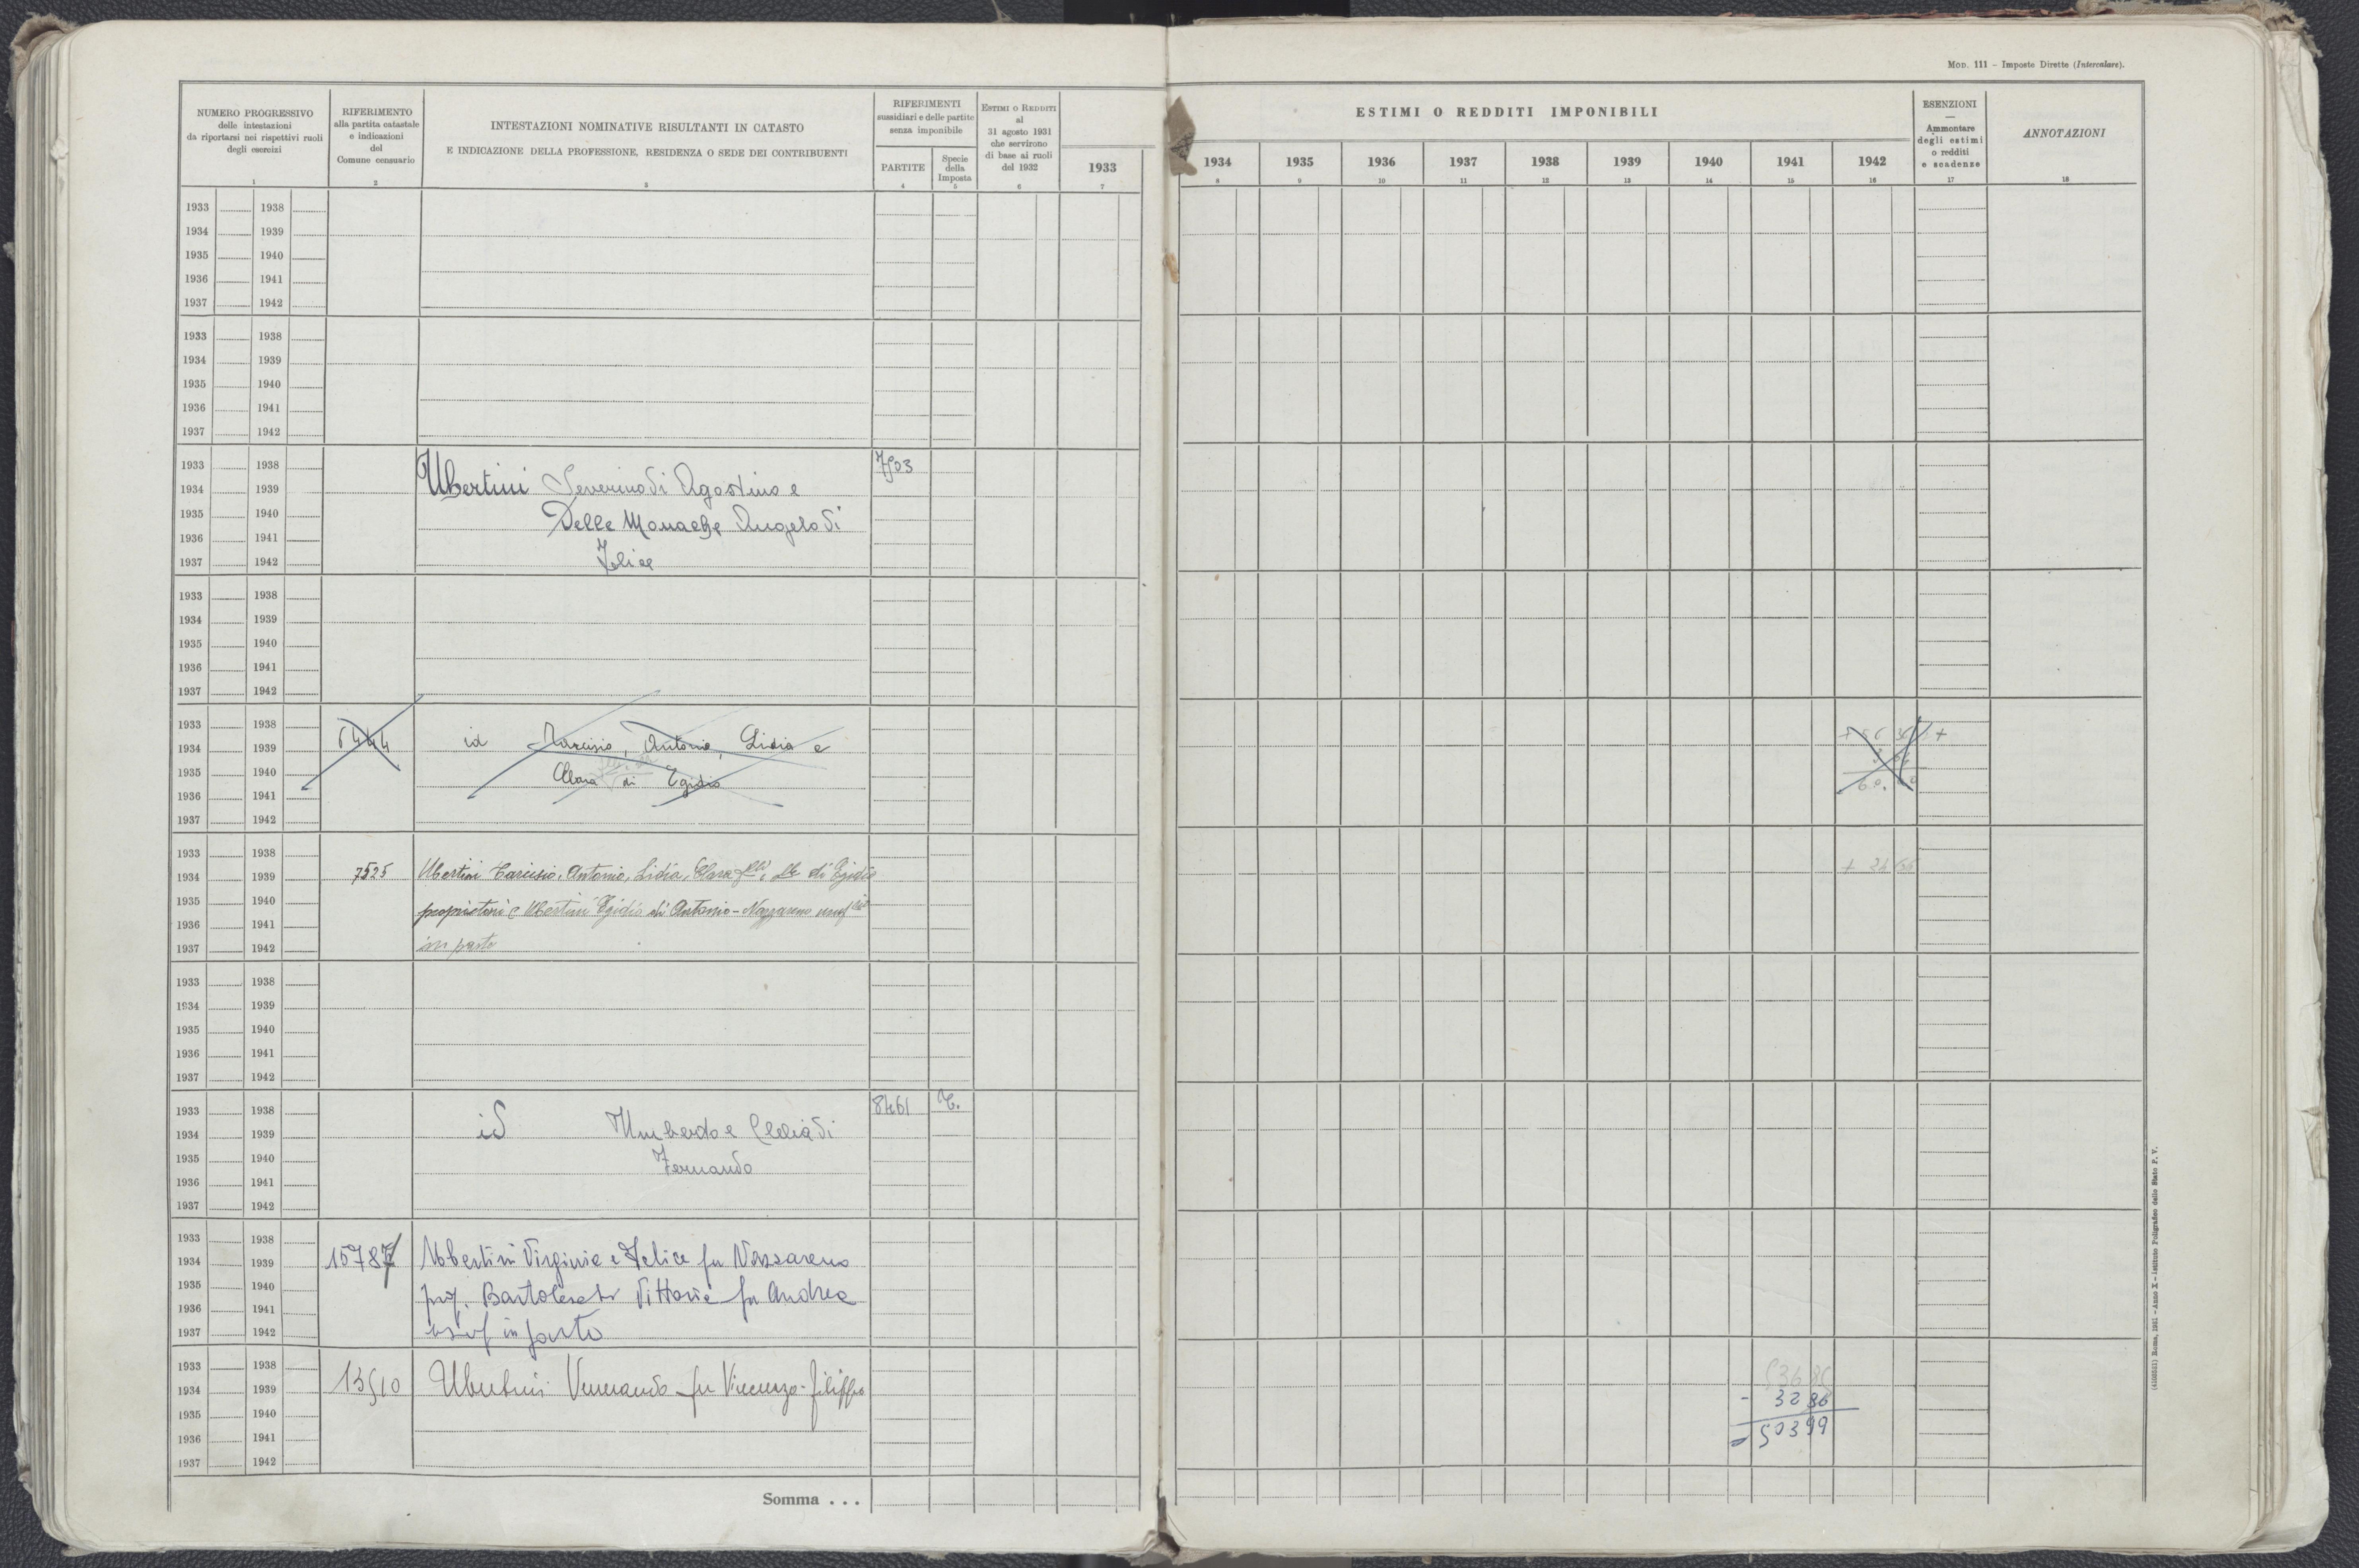 Mod. 111 – Imposte Dirette (Intercalare).
NUMERO PROGRESSIVO
delle intestazioni
da riportarsi nei rispettivi ruoli
degli esercizi
1
RIFERIMENTO
alla partita catastale
e indicazioni
del
Comune censuario
2
INTESTAZIONI NOMINATIVE RISULTANTI IN CATASTO
E INDICAZIONE DELLA PROFESSIONE, RESIDENZA O SEDE DEI CONTRIBUENTI
3
RIFERIMENTI
sussidiari e delle partite
senza imponibile
PARTITE
4
Specie
della
Imposta
5
Estimi o Redditi
al
31 agosto 1931
che servirono
di base ai ruoli
del 1932
6
1933
7
ESTIMI O REDDITI IMPONIBILI
1934 1935 1936 1937 1938 1939 1940 1941 1942
8 9 10 11 12 13 14 15 16
ESENZIONI
—
Ammontare
degli estimi
o redditi
e scadenze
17
ANNOTAZIONI
18
1933 1938
1934 1939
1935 1940
1936 1941
1937 1942
1933 1938
1934 1939
1935 1940
1936 1941
1937 1942
1933 1938 7503
1934 1939 Ubertini Severino di Agostino e
1935 1940 Delle Monache Angelo di
1936 1941
1937 1942 Felice
1933 1938
1934 1939
1935 1940
1936 1941
1937 1942
1933 1938
1934 1939 6444 id Tarcisio, Antonio, Lidia e
1935 1940 Clara di Egidio
1936 1941
1937 1942
1933 1938
1934 1939 7525 Ubertini Tarcisio, Antonio, Lidia, Clara f.lli e di Egidio
1935 1940 proprietari e Ubertini Egidio di Antonio-Nazzareno
1936 1941
1937 1942 in parte
1933 1938
1934 1939
1935 1940
1936 1941
1937 1942
1933 1938 8461 T.
1934 1939 id Umberto e Clelia di
1935 1940 Fernando
1936 1941
1937 1942
1933 1938
1934 1939 15787 Ubertini Virginia e Felice fu Nazzareno
1935 1940 prop. Bartoleschi Vittoria fu Andrea
1936 1941
1937 1942 usuf in parte
1933 1938 53685
1934 1939 13510 Ubertini Venerando fu Vincenzo-filippo - 3286
1935 1940 50399
1936 1941
1937 1942
Somma . . .
(4106851) Roma, 1931 – Anno X – Istituto Poligrafico dello Stato P. V.